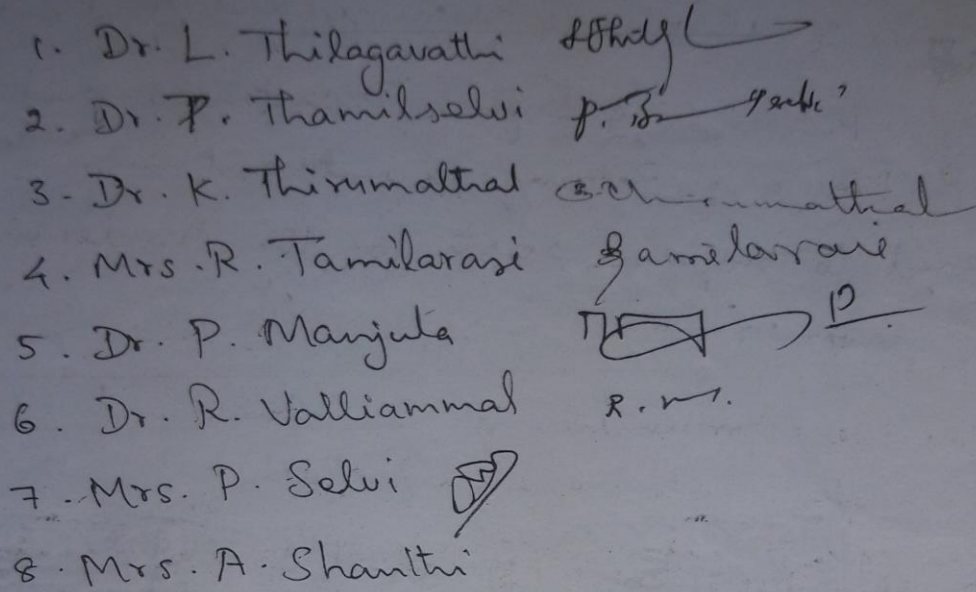 1. Dr. L. Thilagavathi
2. Dr. P. Thamilselvi
3. Dr. K. Thirumalthal Thirumatthal
4. Mrs. R. Tamilarasi
5. Dr. P. Manjula P
6. Dr. R. Valliammal
7. Mrs. P. Selvi
8. Mrs. A. Shanthi